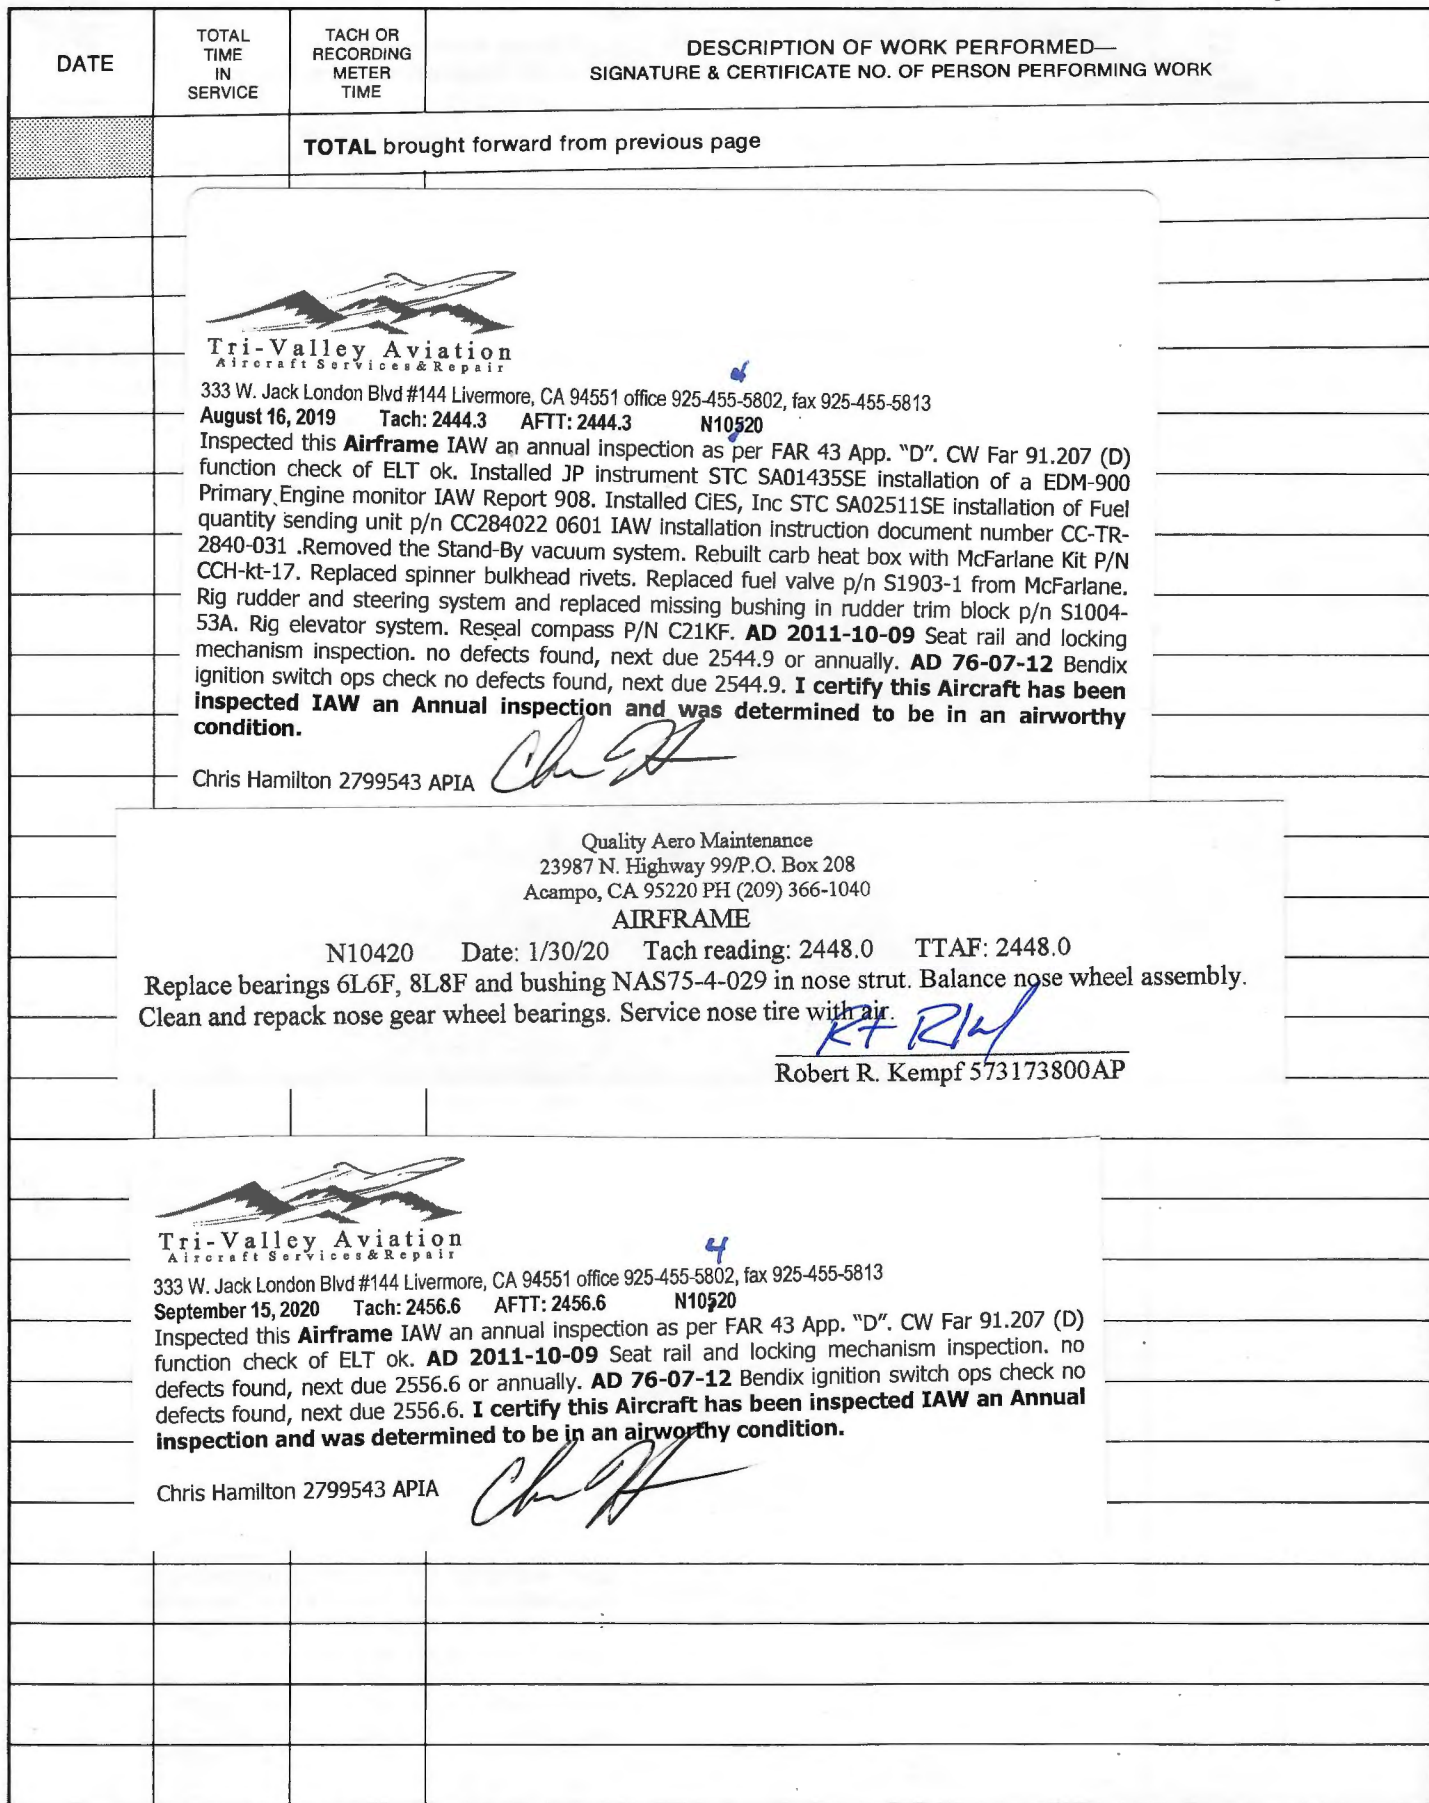 DATE
TOTAL
TIME
IN
SERVICE
TACH OR
RECORDING
METER
TIME
DESCRIPTION OF WORK PERFORMED—
SIGNATURE & CERTIFICATE NO. OF PERSON PERFORMING WORK
TOTAL brought forward from previous page
Tri-Valley Aviation
Aircraft Services&Repair
333 W. Jack London Blvd #144 Livermore, CA 94551 office 925-455-5802, fax 925-455-5813
August 16, 2019 Tach: 2444.3 AFTT: 2444.3 N10520
Inspected this Airframe IAW an annual inspection as per FAR 43 App. “D”. CW Far 91.207 (D)
function check of ELT ok. Installed JP instrument STC SA01435SE installation of a EDM-900
Primary Engine monitor IAW Report 908. Installed CiES, Inc STC SA02511SE installation of Fuel
quantity sending unit p/n CC284022 0601 IAW installation instruction document number CC-TR-
2840-031 .Removed the Stand-By vacuum system. Rebuilt carb heat box with McFarlane Kit P/N
CCH-kt-17. Replaced spinner bulkhead rivets. Replaced fuel valve p/n S1903-1 from McFarlane.
Rig rudder and steering system and replaced missing bushing in rudder trim block p/n S1004-
53A. Rig elevator system. Reseal compass P/N C21KF. AD 2011-10-09 Seat rail and locking
mechanism inspection. no defects found, next due 2544.9 or annually. AD 76-07-12 Bendix
ignition switch ops check no defects found, next due 2544.9. I certify this Aircraft has been
inspected IAW an Annual inspection and was determined to be in an airworthy
condition.
Chris Hamilton 2799543 APIA
Quality Aero Maintenance
23987 N. Highway 99/P.O. Box 208
Acampo, CA 95220 PH (209) 366-1040
AIRFRAME
N10420 Date: 1/30/20 Tach reading: 2448.0 TTAF: 2448.0
Replace bearings 6L6F, 8L8F and bushing NAS75-4-029 in nose strut. Balance nose wheel assembly.
Clean and repack nose gear wheel bearings. Service nose tire with air.
Robert R. Kempf 573173800AP
Tri-Valley Aviation
Aircraft Services&Repair
4
333 W. Jack London Blvd #144 Livermore, CA 94551 office 925-455-5802, fax 925-455-5813
September 15, 2020 Tach: 2456.6 AFTT: 2456.6 N10520
Inspected this Airframe IAW an annual inspection as per FAR 43 App. “D”. CW Far 91.207 (D)
function check of ELT ok. AD 2011-10-09 Seat rail and locking mechanism inspection. no
defects found, next due 2556.6 or annually. AD 76-07-12 Bendix ignition switch ops check no
defects found, next due 2556.6. I certify this Aircraft has been inspected IAW an Annual
inspection and was determined to be in an airworthy condition.
Chris Hamilton 2799543 APIA